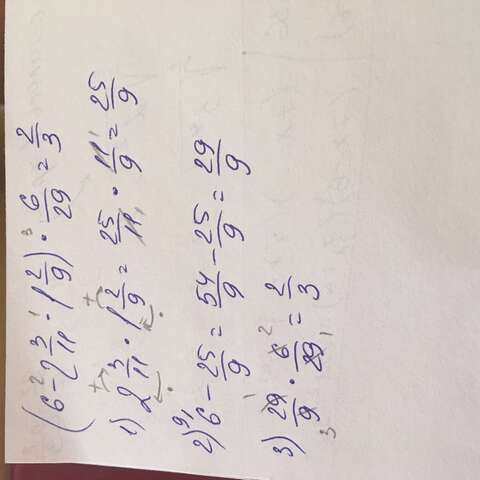 (6 - 2 3/11 · 1 2/9) · 6/29 = 2/3
1) 2 3/11 · 1 2/9 = 25/11 · 11/9 = 25/9
2) 6 - 25/9 = 54/9 - 25/9 = 29/9
3) 29/9 · 6/29 = 2/3